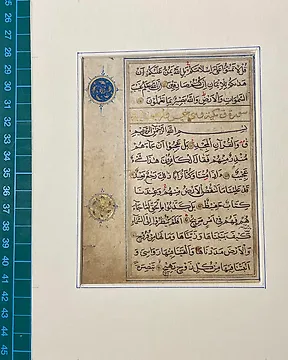 قُلْ لَا تَمُنُّوا عَلَيَّ اِسْلَامَكُمْ بَلِ اللّٰهُ يَمُنُّ عَلَيْكُمْ اَنْ
هَدٰيكُمْ لِلْاِيمَانِ اِنْ كُنْتُمْ صَادِقِينَ اِنَّ اللّٰهَ يَعْلَمُ غَيْبَ
السَّمٰوَاتِ وَالْاَرْضِ وَاللّٰهُ بَصِيرٌ بِمَا تَعْمَلُونَ
سورة ق
بِسْمِ اللّٰهِ الرَّحْمٰنِ الرَّحِيمِ
ق وَالْقُرْاٰنِ الْمَجِيدِ بَلْ عَجِبُوا اَنْ جَاءَهُمْ
مُنْذِرٌ مِنْهُمْ فَقَالَ الْكَافِرُونَ هٰذَا شَيْءٌ
عَجِيبٌ ءَاِذَا مِتْنَا وَكُنَّا تُرَابًا ذٰلِكَ رَجْعٌ بَعِيدٌ
قَدْ عَلِمْنَا مَا تَنْقُصُ الْاَرْضُ مِنْهُمْ وَعِنْدَنَا
كِتَابٌ حَفِيظٌ بَلْ كَذَّبُوا بِالْحَقِّ لَمَّا جَاءَهُمْ
فَهُمْ فِي اَمْرٍ مَرِيجٍ اَفَلَمْ يَنْظُرُوا اِلَى السَّمَاءِ فَوْقَهُمْ
كَيْفَ بَنَيْنَاهَا وَزَيَّنَّاهَا وَمَا لَهَا مِنْ فُرُوجٍ
وَالْاَرْضَ مَدَدْنَاهَا وَاَلْقَيْنَا فِيهَا رَوَاسِيَ وَ
اَنْبَتْنَا فِيهَا مِنْ كُلِّ زَوْجٍ بَهِيجٍ تَبْصِرَةً
26
27
28
29
30
31
32
33
34
35
36
37
38
39
40
41
42
43
44
45